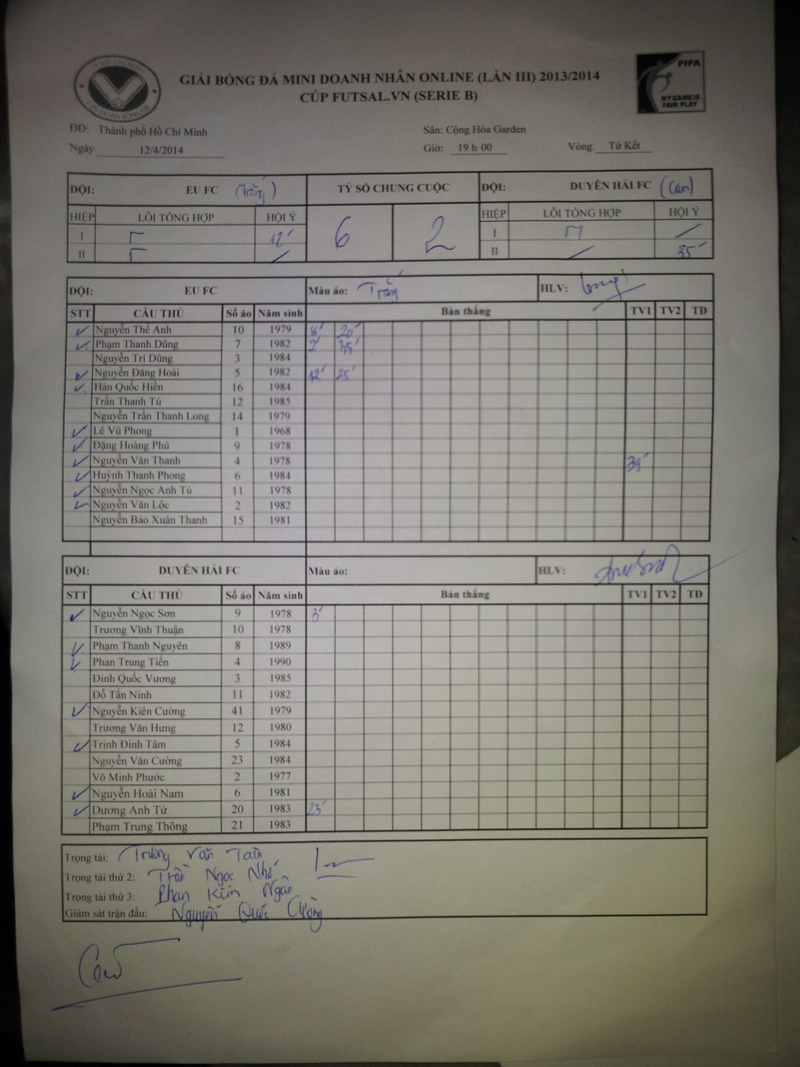 GIẢI BÓNG ĐÁ MINI DOANH NHÂN ONLINE (LẦN III) 2013/2014
CÚP FUTSAL.VN (SERIE B)
FIFA
MY GAME IS
FAIR PLAY
ĐĐ: Thành phố Hồ Chí Minh Sân: Cộng Hòa Garden
Ngày 12/4/2014 Giờ: 19 h 00 Vòng: Tứ Kết
ĐỘI: EU FC (Trắng) TỶ SỐ CHUNG CUỘC ĐỘI: DUYÊN HẢI FC (Cam)
HIỆP LỖI TỔNG HỢP HỘI Ý 6 2 HIỆP LỖI TỔNG HỢP HỘI Ý
I 12' I
II II 35'
ĐỘI: EU FC Màu áo: Trắng HLV:
STT CẦU THỦ Số áo Năm sinh Bàn thắng TV1 TV2 TĐ
Nguyễn Thế Anh 10 1979 20'
Phạm Thanh Dũng 7 1982 2' 35'
Nguyễn Trí Dũng 3 1984
Nguyễn Đăng Hoài 5 1982 12' 25'
Hàn Quốc Hiền 16 1984
Trần Thanh Tú 12 1985
Nguyễn Trần Thanh Long 14 1979
Lê Vũ Phong 1 1968
Đặng Hoàng Phú 9 1978
Nguyễn Văn Thanh 4 1978 39'
Huỳnh Thanh Phong 6 1984
Nguyễn Ngọc Anh Tú 11 1978
Nguyễn Văn Lộc 2 1982
Nguyễn Bảo Xuân Thanh 15 1981
ĐỘI: DUYÊN HẢI FC Màu áo: HLV:
STT CẦU THỦ Số áo Năm sinh Bàn thắng TV1 TV2 TĐ
Nguyễn Ngọc Sơn 9 1978 3'
Trương Vĩnh Thuận 10 1978
Phạm Thanh Nguyên 8 1989
Phan Trung Tiến 4 1990
Đinh Quốc Vương 3 1985
Đỗ Tấn Ninh 11 1982
Nguyễn Kiên Cường 41 1979
Trương Văn Hưng 12 1980
Trịnh Đình Tâm 5 1984
Nguyễn Văn Cường 23 1984
Võ Minh Phước 2 1977
Nguyễn Hoài Nam 6 1981
Dương Anh Tứ 20 1983 23'
Phạm Trung Thông 21 1983
Trọng tài: Trương Văn
Trọng tài thứ 2: Trần Ngọc Nhớ
Trọng tài thứ 3: Phan Kim Ngân
Giám sát trận đấu: Nguyễn Quốc Cường